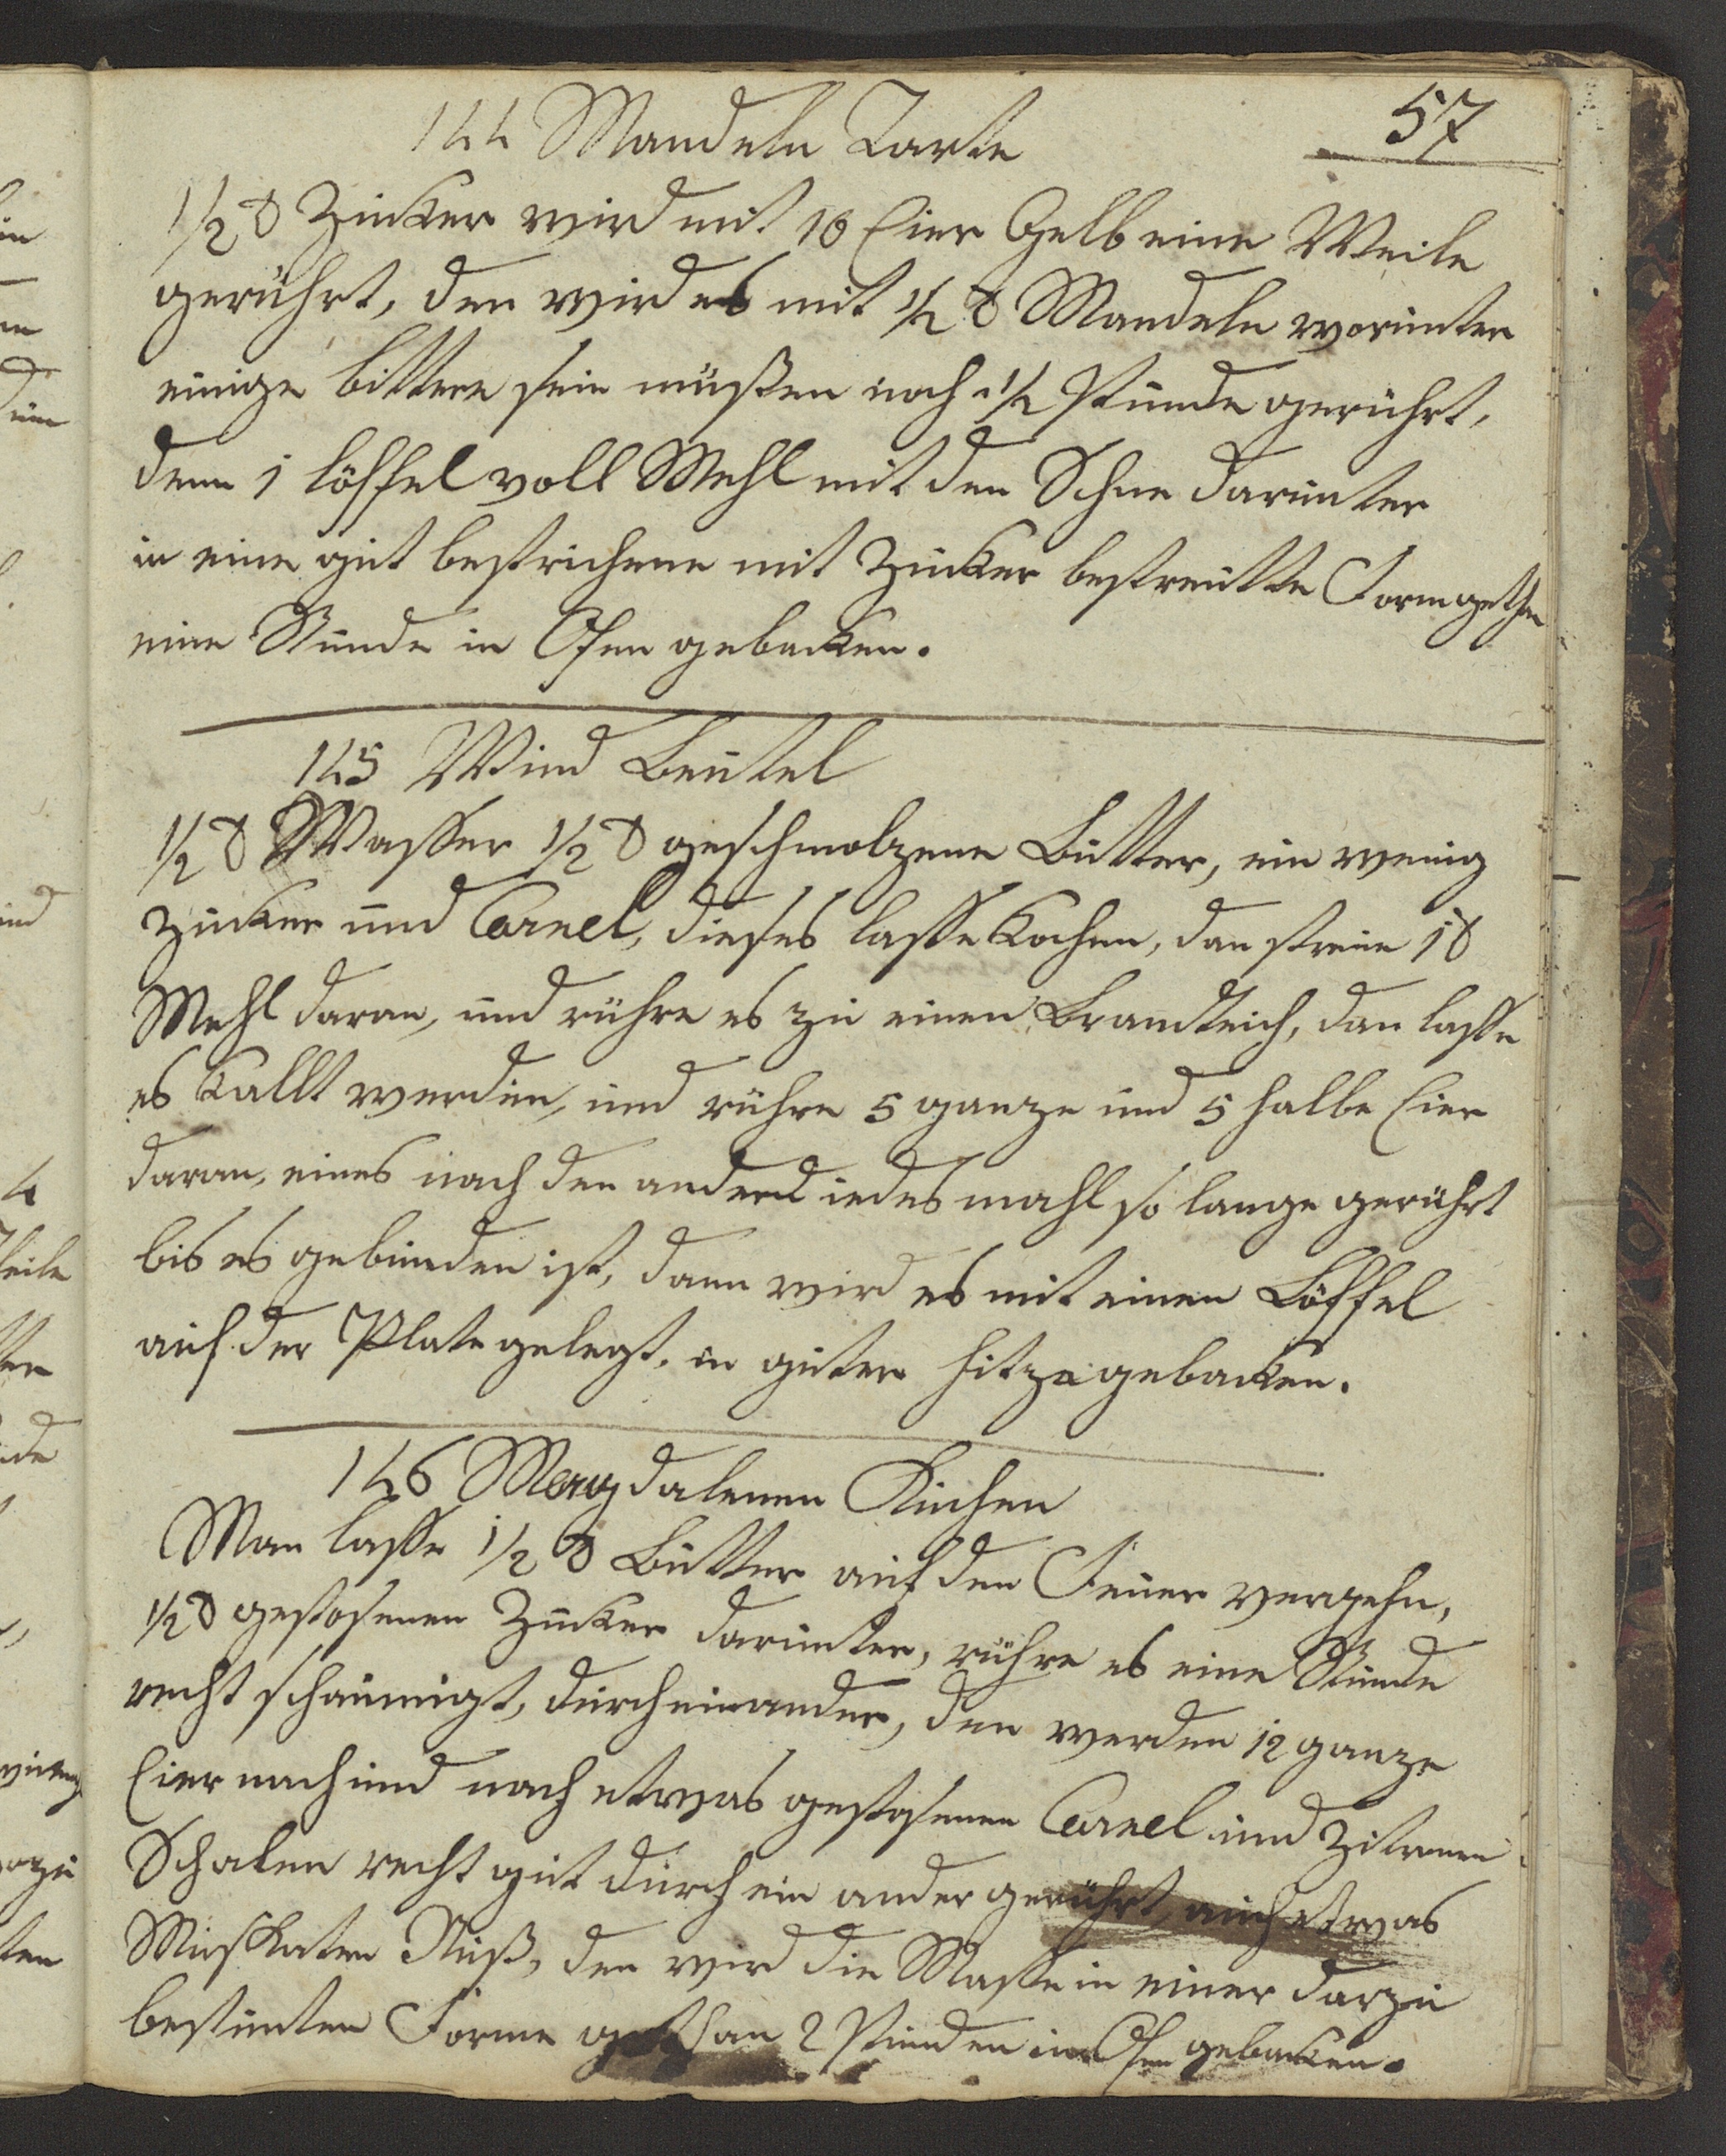 57
144 Mandeln Tarte
1/2 ℔ Zucker wird mit 16 Eier Gelb eine Weile
gerührt, den wird es mit 1/2 ℔ Mandeln worunter
einige bittere sein müßen noch 1/2 Stunde gerührt,
denn 1 löffel voll Mehl mit den Schne darunter
in eine gut bestrichene mit Zucker bestreutte Form gethan
eine Stunde in Ofen gebacken.
145 Wind Beutel
1/2 ℔ Wasser 1/2 ℔ geschmolzene Butter, ein wenig
Zucker und Carnel, dieses lasse Kochen, dan streue 1 ℔
Mehl daran, und rühre es zu einen Brandteich, dan lasse
es Kallt werden, und rühre 5 ganze und 5 halbe Eier
daran, eines nach den andern iedes mahl so lange gerührt
bis es gebunden ist, dann wird es mit einen Löffel
auf der Plate gelegt, in guter Hitze gebacken.
146 Magdalenen Kuchen
Man lasse 1/2 ℔ Butter auf den Feuer vergehn,
1/2 ℔ gestosenen Zucker darunter, rühre es eine Stunde
recht schaumigt, durcheinander, den werden 12 ganze
Eier nach und nach etwas gestosenen Carnel und Zitronen
Schalen recht gut durch ein ander gerührt, auch etwas
Muskaten Nuß, den wird die Masse in einer darzu
bestimten Forme gethan 2 Stunden im Ofen gebacken.